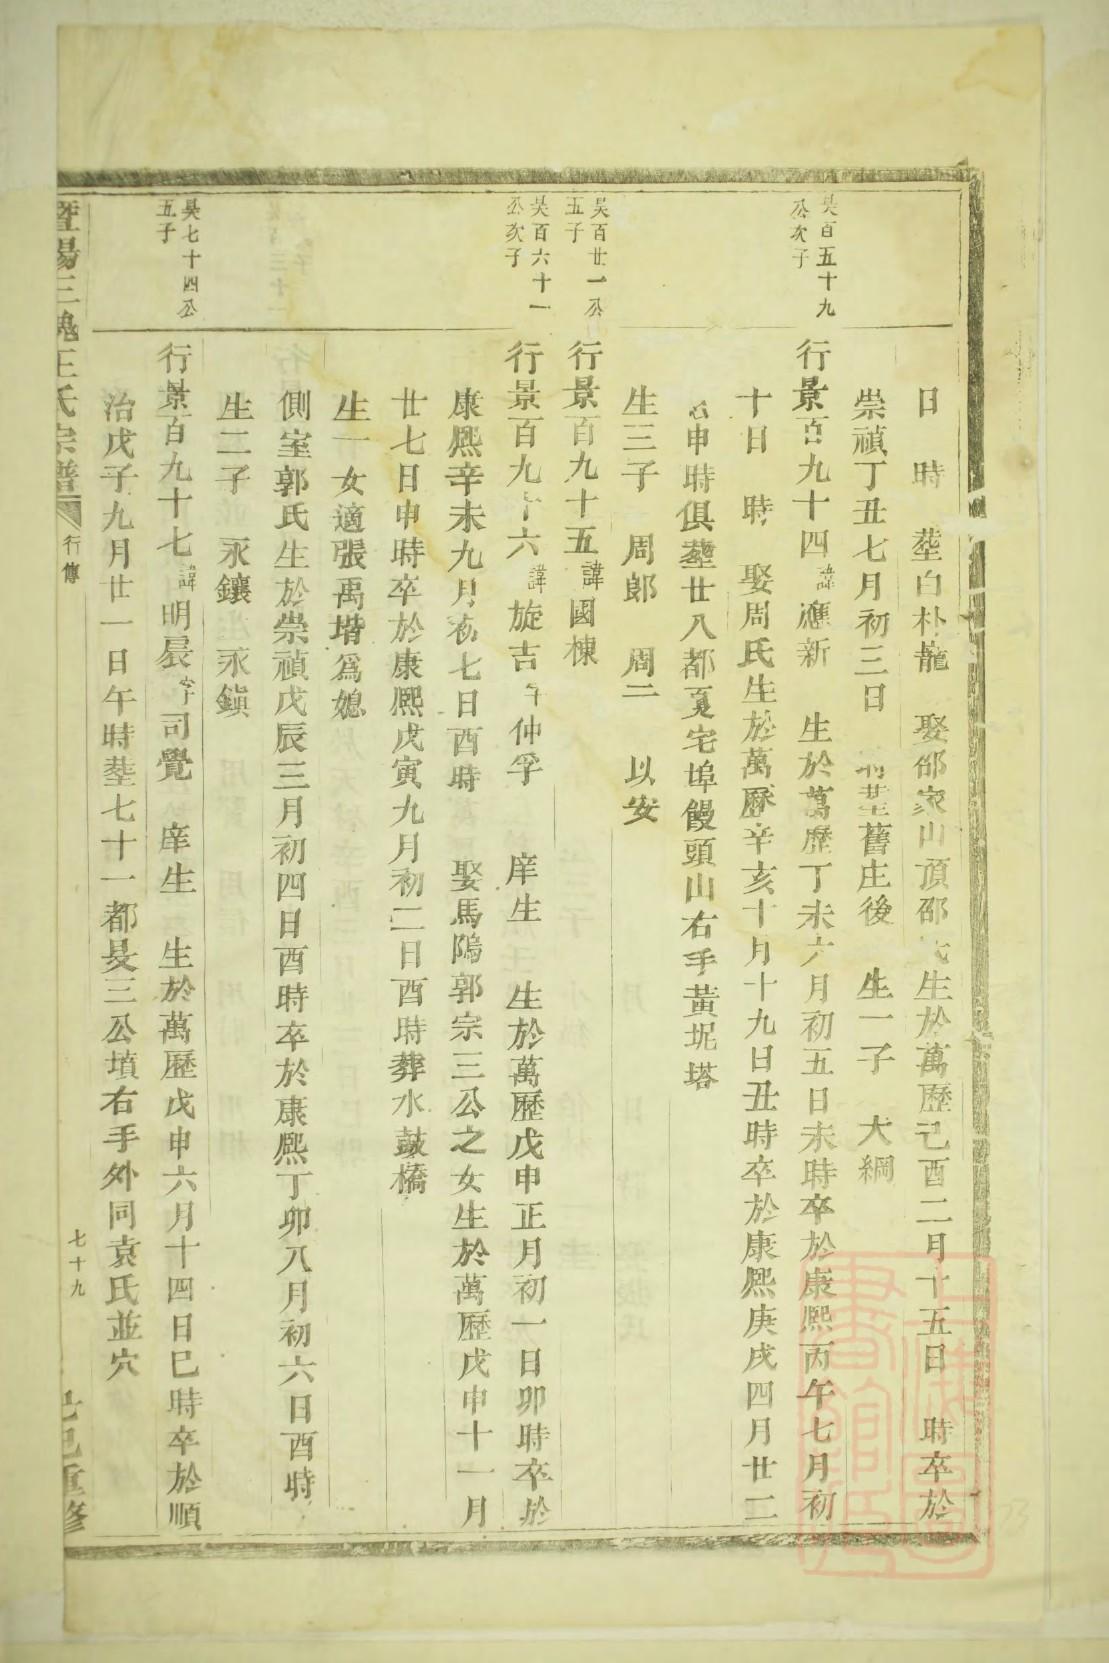 日　時　塟白朴蘢　娶邵家山頂邵氏生於萬歷己酉二月十五日　時卒於
崇禎丁丑七月初三日　塟舊庄後　生一子　大綱
吴百五十九
公次子
行景百九十四諱應新　生於萬歷丁未六月初五日未時卒於康熙丙午七月初
十日　時　娶周氏生於萬歷辛亥十月十九日丑時卒於康熙庚戌四月廿二
申時俱塟廿八都夏宅埠饅頭山右手黃坭塔
生三子　周郎　周二　以安
吴百廿一公
五子
行景百九十五諱國棟
吴百六十一
公次子
行景百九十六諱旋吉字仲孚　庠生　生於萬歷戊申正月初一日卯時卒於
康熙辛未九月初七日酉時　娶馬鴋郭宗三公之女生於萬歷戊申十一月
廿七日申時卒於康熙戊寅九月初二日酉時葬水鼓橋
生一女適張禹堦爲媳
側室郭氏生於崇禎戊辰三月初四日酉時卒於康熙丁卯八月初六日酉時
生二子　永鑲　永鎮
吴七十四公
五子
行景百九十七諱明晨字司覺　庠生　生於萬歷戊申六月十四日巳時卒於順
治戊子九月廿一日午時塟七十一都旻三公墳右手外同袁氏並穴
暨陽三槐王氏宗譜　行傳　七十九　己巳重修
上海圖書館藏